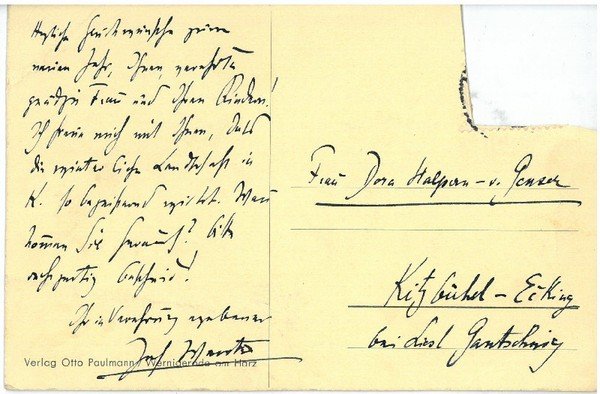 Herzliche Glückwünsche zum
neuen Jahr, Ihnen, verehrte
gnädige Frau und Ihren Kindern!
Ich freue mich mit Ihnen, daß
die winterliche Landschaft in
K. so begeisternd wirkt. Wann
kommen Sie herauf? Bitte
rechtzeitig Bescheid!
Ihr in Verehrung ergebener
Verlag Otto Paulmann, Wernigerode am Harz
Frau Dora Halpern-v. Genser
Kitzbühel – Ecking
bei Liesl